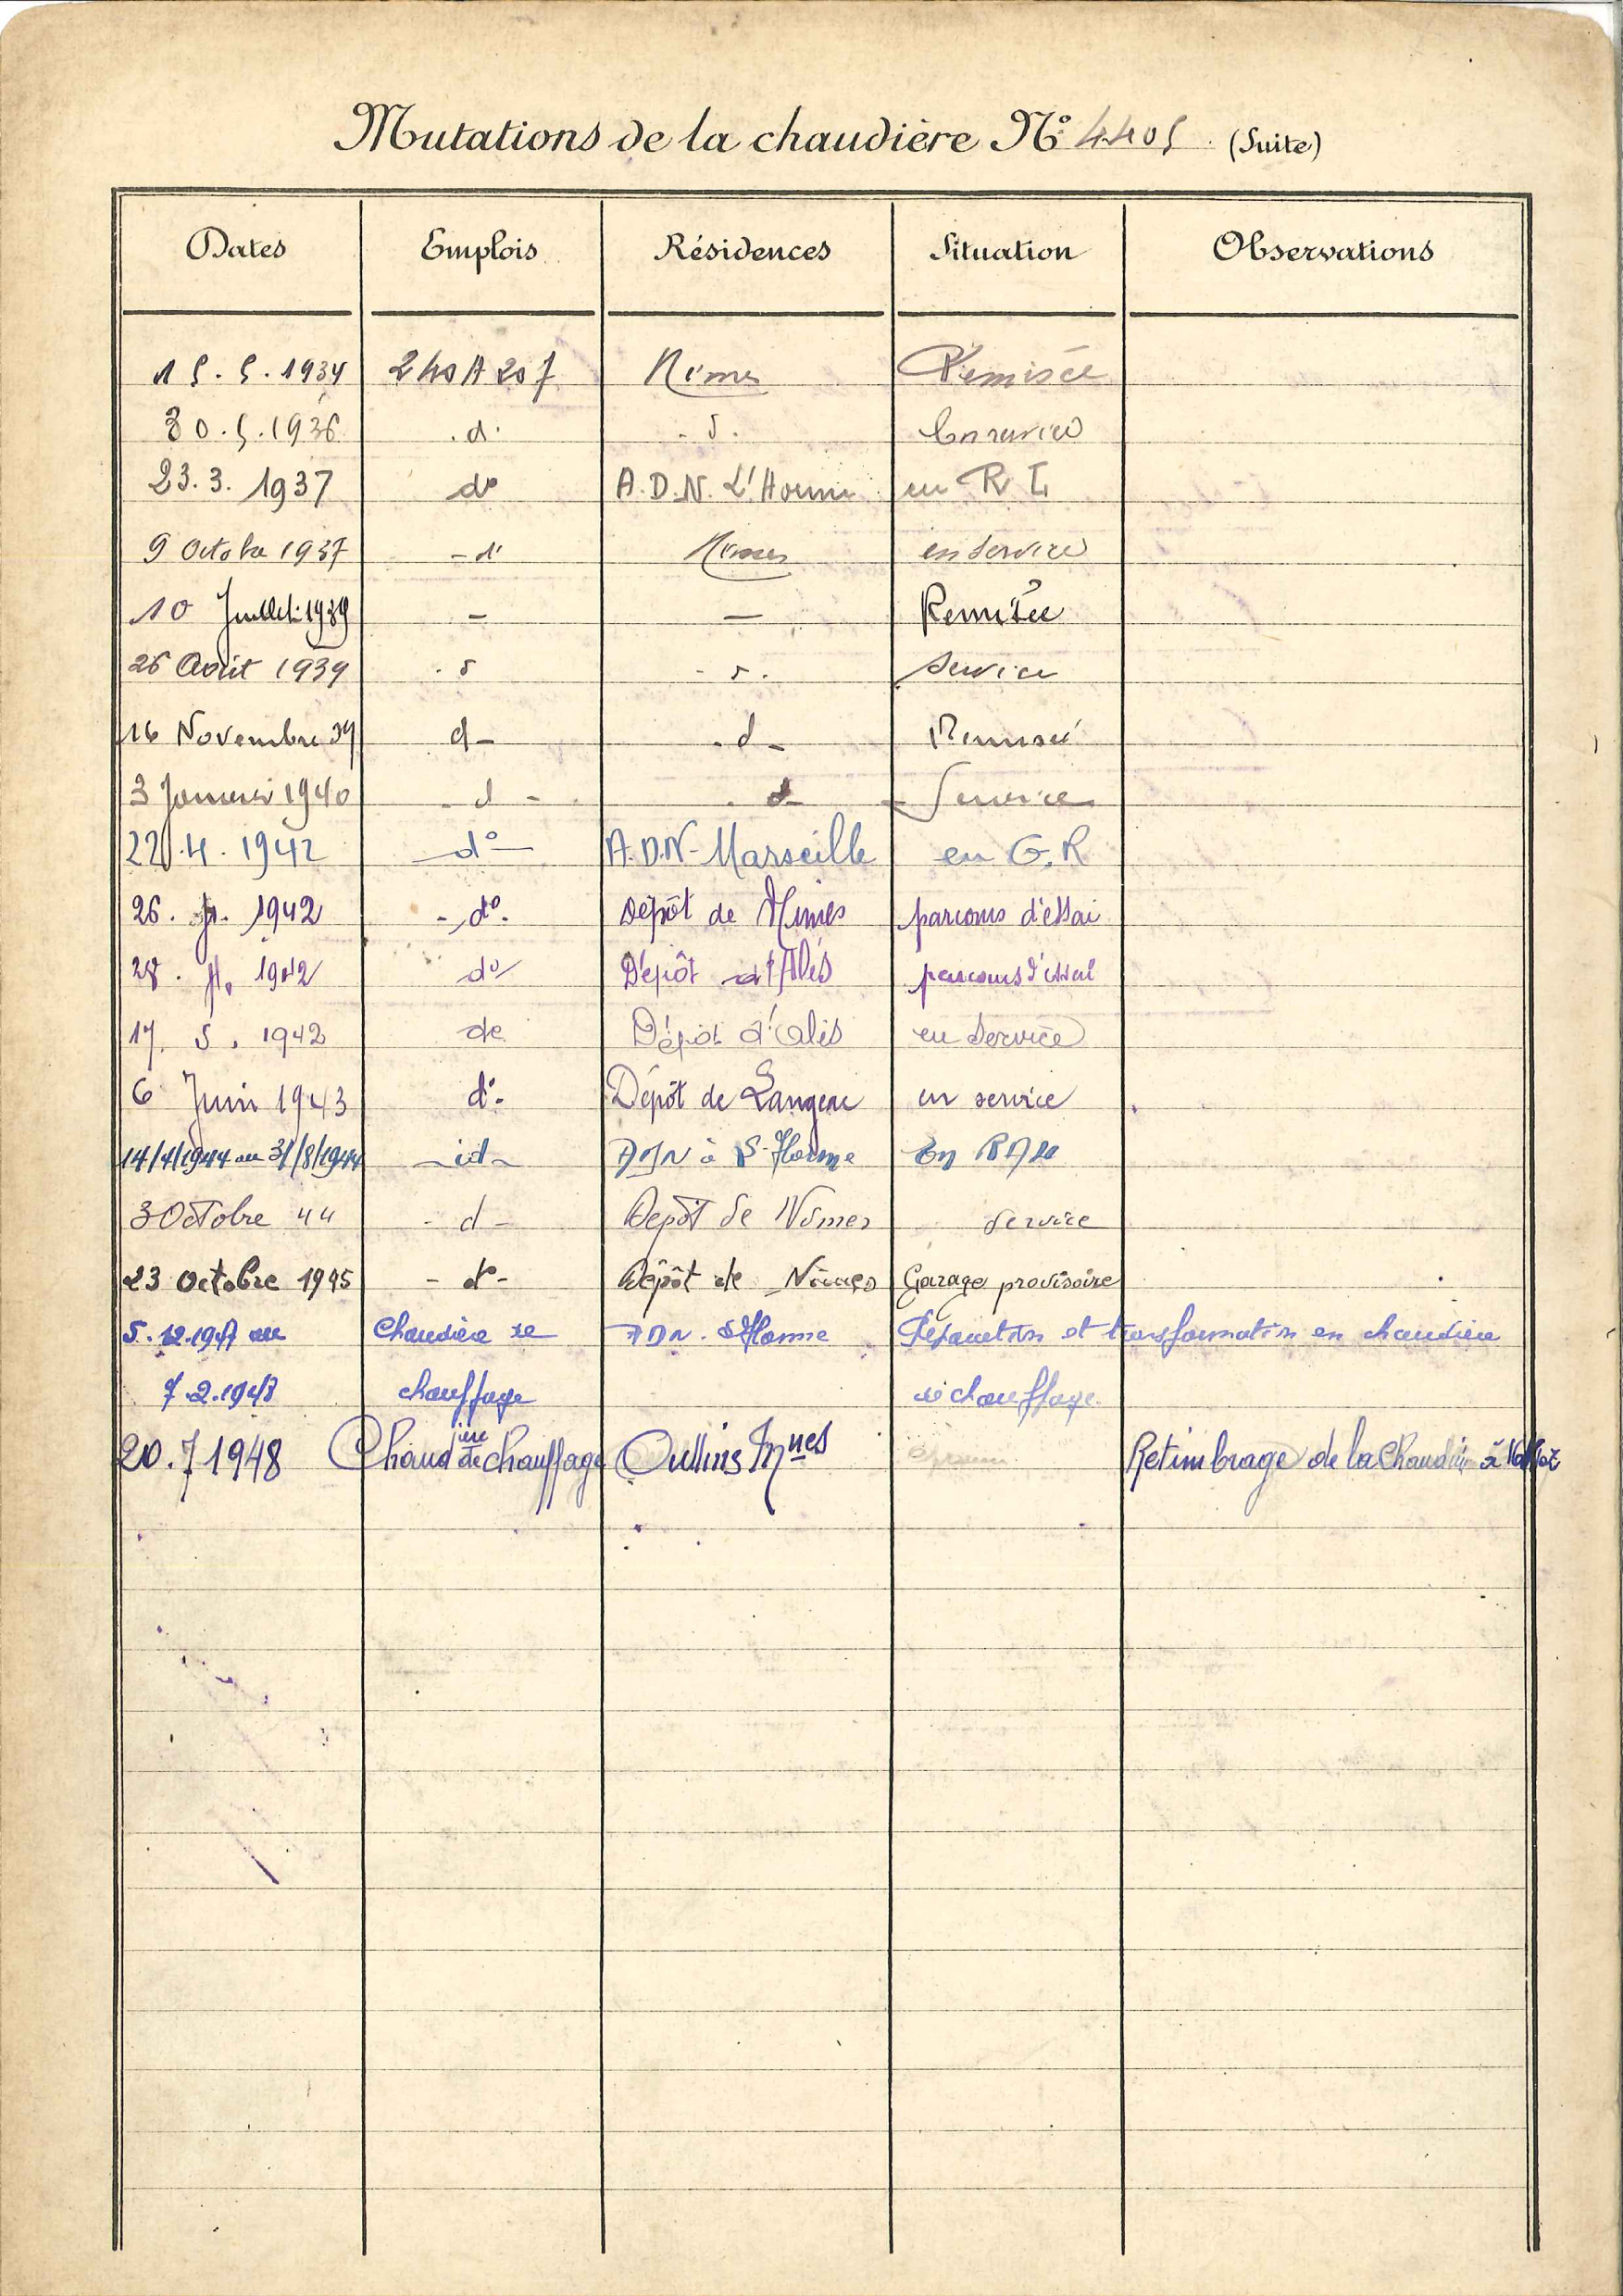 Mutations de la chaudière N° 4405 (Suite)
Dates Emplois Résidences Situation Observations
15.5.1934 240 A 207 Nîmes Remisée
30.5.1936 .d. En service
23.3.1937 d° A.D.N. L'Horme en R
9 Octobre 1937 - d° Nîmes en service
10 Juillet 1939 — — Remisée
26 Août 1939 Service
16 Novembre 39 d - . d - Remisée
3 Janvier 1940 - d - . d - Service
22.4.1942 - d° - A.D.N. Marseille en G.R
26. 1942 - d°. Dépôt de Nîmes parcours d'essai
28. 1942 d° Dépôt d'Alès parcours d'essai
17. 5. 1942 d° Dépôt d'Alès en service
6 Juin 1943 d°. Dépôt de en service
14/4/1944 au 31/8/1944 - id - ADN à L'Horme En
3 Octobre 44 - d - Dépôt de Nîmes Service
23 Octobre 1945 - d° - Dépôt de Nîmes Garage provisoire
5.12.1947 au Chaudière de ADN. L'Horme Réparation et transformation en chaudière
7.2.1948 chauffage de chauffage
20.7 1948 Chaudière de chauffage Oullins Mnes Retimbrage de la Chaudière à